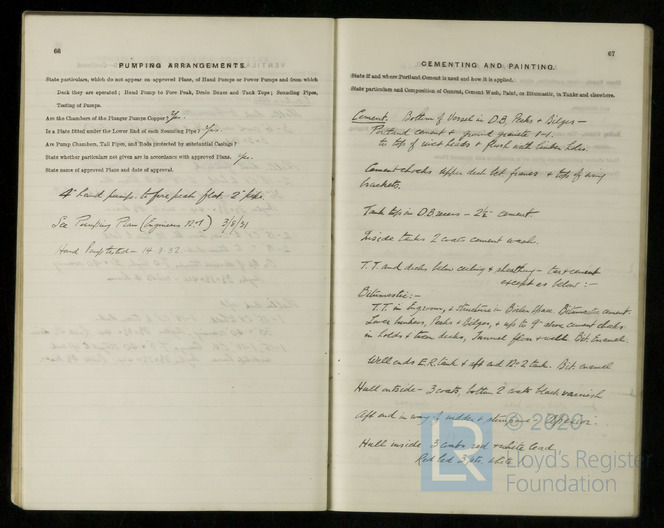 66
PUMPING ARRANGEMENTS.
State particulars, which do not appear on approved Plans, of Hand Pumps or Power Pumps and from which
Deck they are operated; Hand Pump to Fore Peak, Drain Boxes and Tank Tops; Sounding Pipes,
Testing of Pumps.
Are the Chambers of the Plunger Pumps Copper? Yes.
Is a Plate fitted under the Lower End of each Sounding Pipe? Yes.
Are Pump Chambers, Tail Pipes, and Rods protected by substantial Casings?
State whether particulars not given are in accordance with approved Plans. Yes.
State name of approved Plans and date of approval.
4" hand pump to fore peak flat 2" pipe.
See Pumping Plan (Engineers No 1) 3/8/31
Hand Pump tested - 14.3.32.
67
CEMENTING AND PAINTING.
State if and where Portland Cement is used and how it is applied.
State particulars and Composition of Cement, Cement Wash, Paint, or Bitumastic, in Tanks and elsewhere.
Cement. Bottom of Vessel in D.B. Peaks & Bilges -
Portland cement & ground granite 1-1.
to top of rivet heads & flush with limber holes.
Cement chocks upper deck bet. frames & top of wing
brackets.
Tank top in D.B. wells - 2½" cement
Inside tanks 2 coats cement wash.
T.T. and decks below ceiling & sheathing - tar & cement
except as below :-
Bitumastic :-
T.T. in Eng. room, & structure in Boiler Space Bitumastic cement.
Lower bunkers, Peaks & Bilges, & up to 9" above cement chocks
in holds & tween decks, Tunnel floor & wells. Bit. Enamel.
Well ends E.R. tank & aft end No. 2 tank. Bit. enamel
Hull outside - 3 coats, bottom 2 coats black varnish
Aft end in way of rudder & sternframe -
Hull inside 3 coats red & white lead
Red led 3 cts. white
© 2020
LR
Lloyd's Register
Foundation